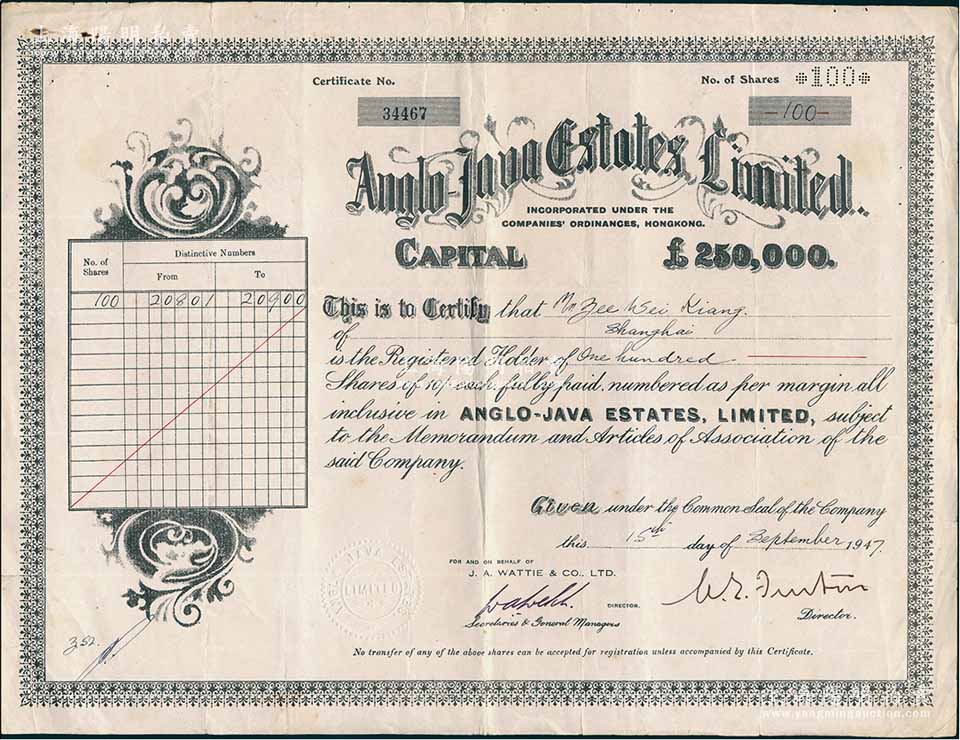 上海陽明拍賣
www.yangmingauction.com
Certificate No.
No. of Shares *100*
34467
-100-
Anglo-Java Estates, Limited.
INCORPORATED UNDER THE
COMPANIES' ORDINANCES, HONGKONG.
CAPITAL £250,000.
No. of Shares
Distinctive Numbers
From To
100 20801 20900
This is to Certify that Mr. Zee Wei Kiang.
of Shanghai
is the Registered Holder of One hundred
Shares of each, fully paid, numbered as per margin all
inclusive in ANGLO-JAVA ESTATES, LIMITED, subject
to the Memorandum and Articles of Association of the
said Company.
Given under the Common Seal of the Company
this 15th day of September 1947.
FOR AND ON BEHALF OF
J. A. WATTIE & CO., LTD.
DIRECTOR.
Secretaries & General Managers
Director.
LIMITED
352.
No transfer of any of the above shares can be accepted for registration unless accompanied by this Certificate.
上海陽明拍賣
www.yangmingauction.com